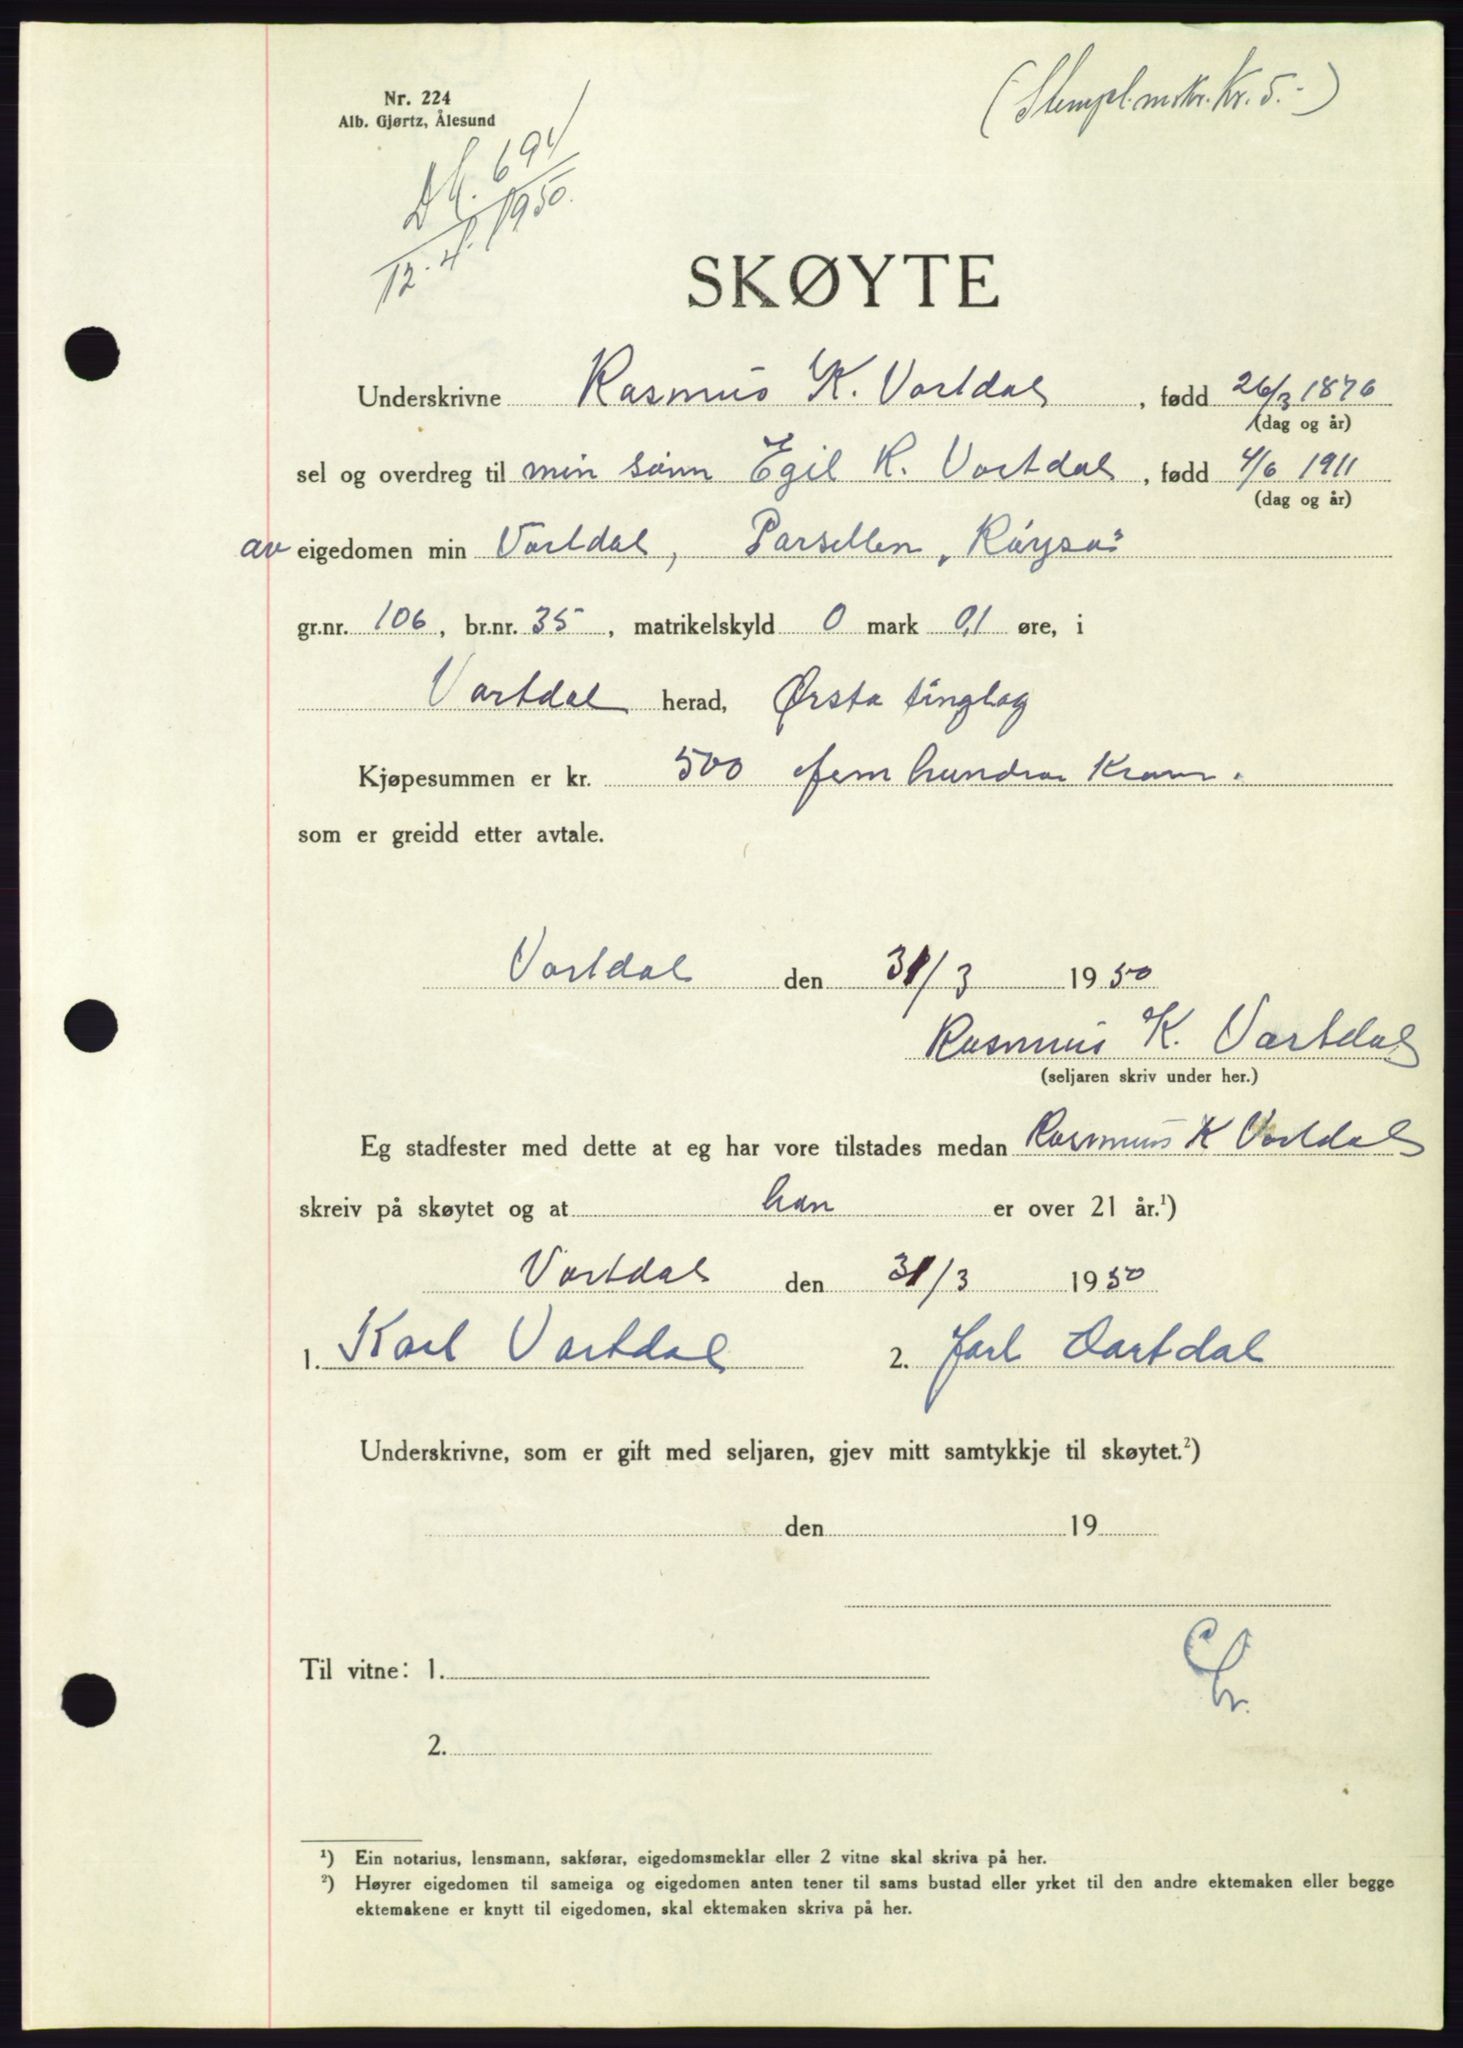 Nr. 224
Alb. Gjørtz, Ålesund
(Stempl.merke. Kr. 5.-)
694
12.4. 1950.
SKØYTE
Underskrivne Rasmus K. Vartdal, fødd 26/3 1876
(dag og år)
sel og overdreg til min sønn Egil R. Vartdal, fødd 4/6 1911
(dag og år)
av eigedomen min Vartdal, Parsellen „Røysa"
gr.nr. 106, br.nr. 35, matrikelskyld 0 mark 0,1 øre, i
Vartdal herad, Ørsta tinglag
Kjøpesummen er kr. 500 fem hundra Kroner.
som er greidd etter avtale.
Vartdal den 31/3 1950
Rasmus K. Vartdal
(seljaren skriv under her.)
Eg stadfester med dette at eg har vore tilstades medan Rasmus K Vartdal
skreiv på skøytet og at han er over 21 år.¹)
Vartdal den 31/3 1950
1. Karl Vartdal 2. Jarl Vartdal
Underskrivne, som er gift med seljaren, gjev mitt samtykkje til skøytet.²)
den 19
Til vitne: 1.
2.
¹) Ein notarius, lensmann, sakførar, eigedomsmeklar eller 2 vitne skal skriva på her.
²) Høyrer eigedomen til sameiga og eigedomen anten tener til sams bustad eller yrket til den andre ektemaken eller begge
ektemakene er knytt til eigedomen, skal ektemaken skriva på her.